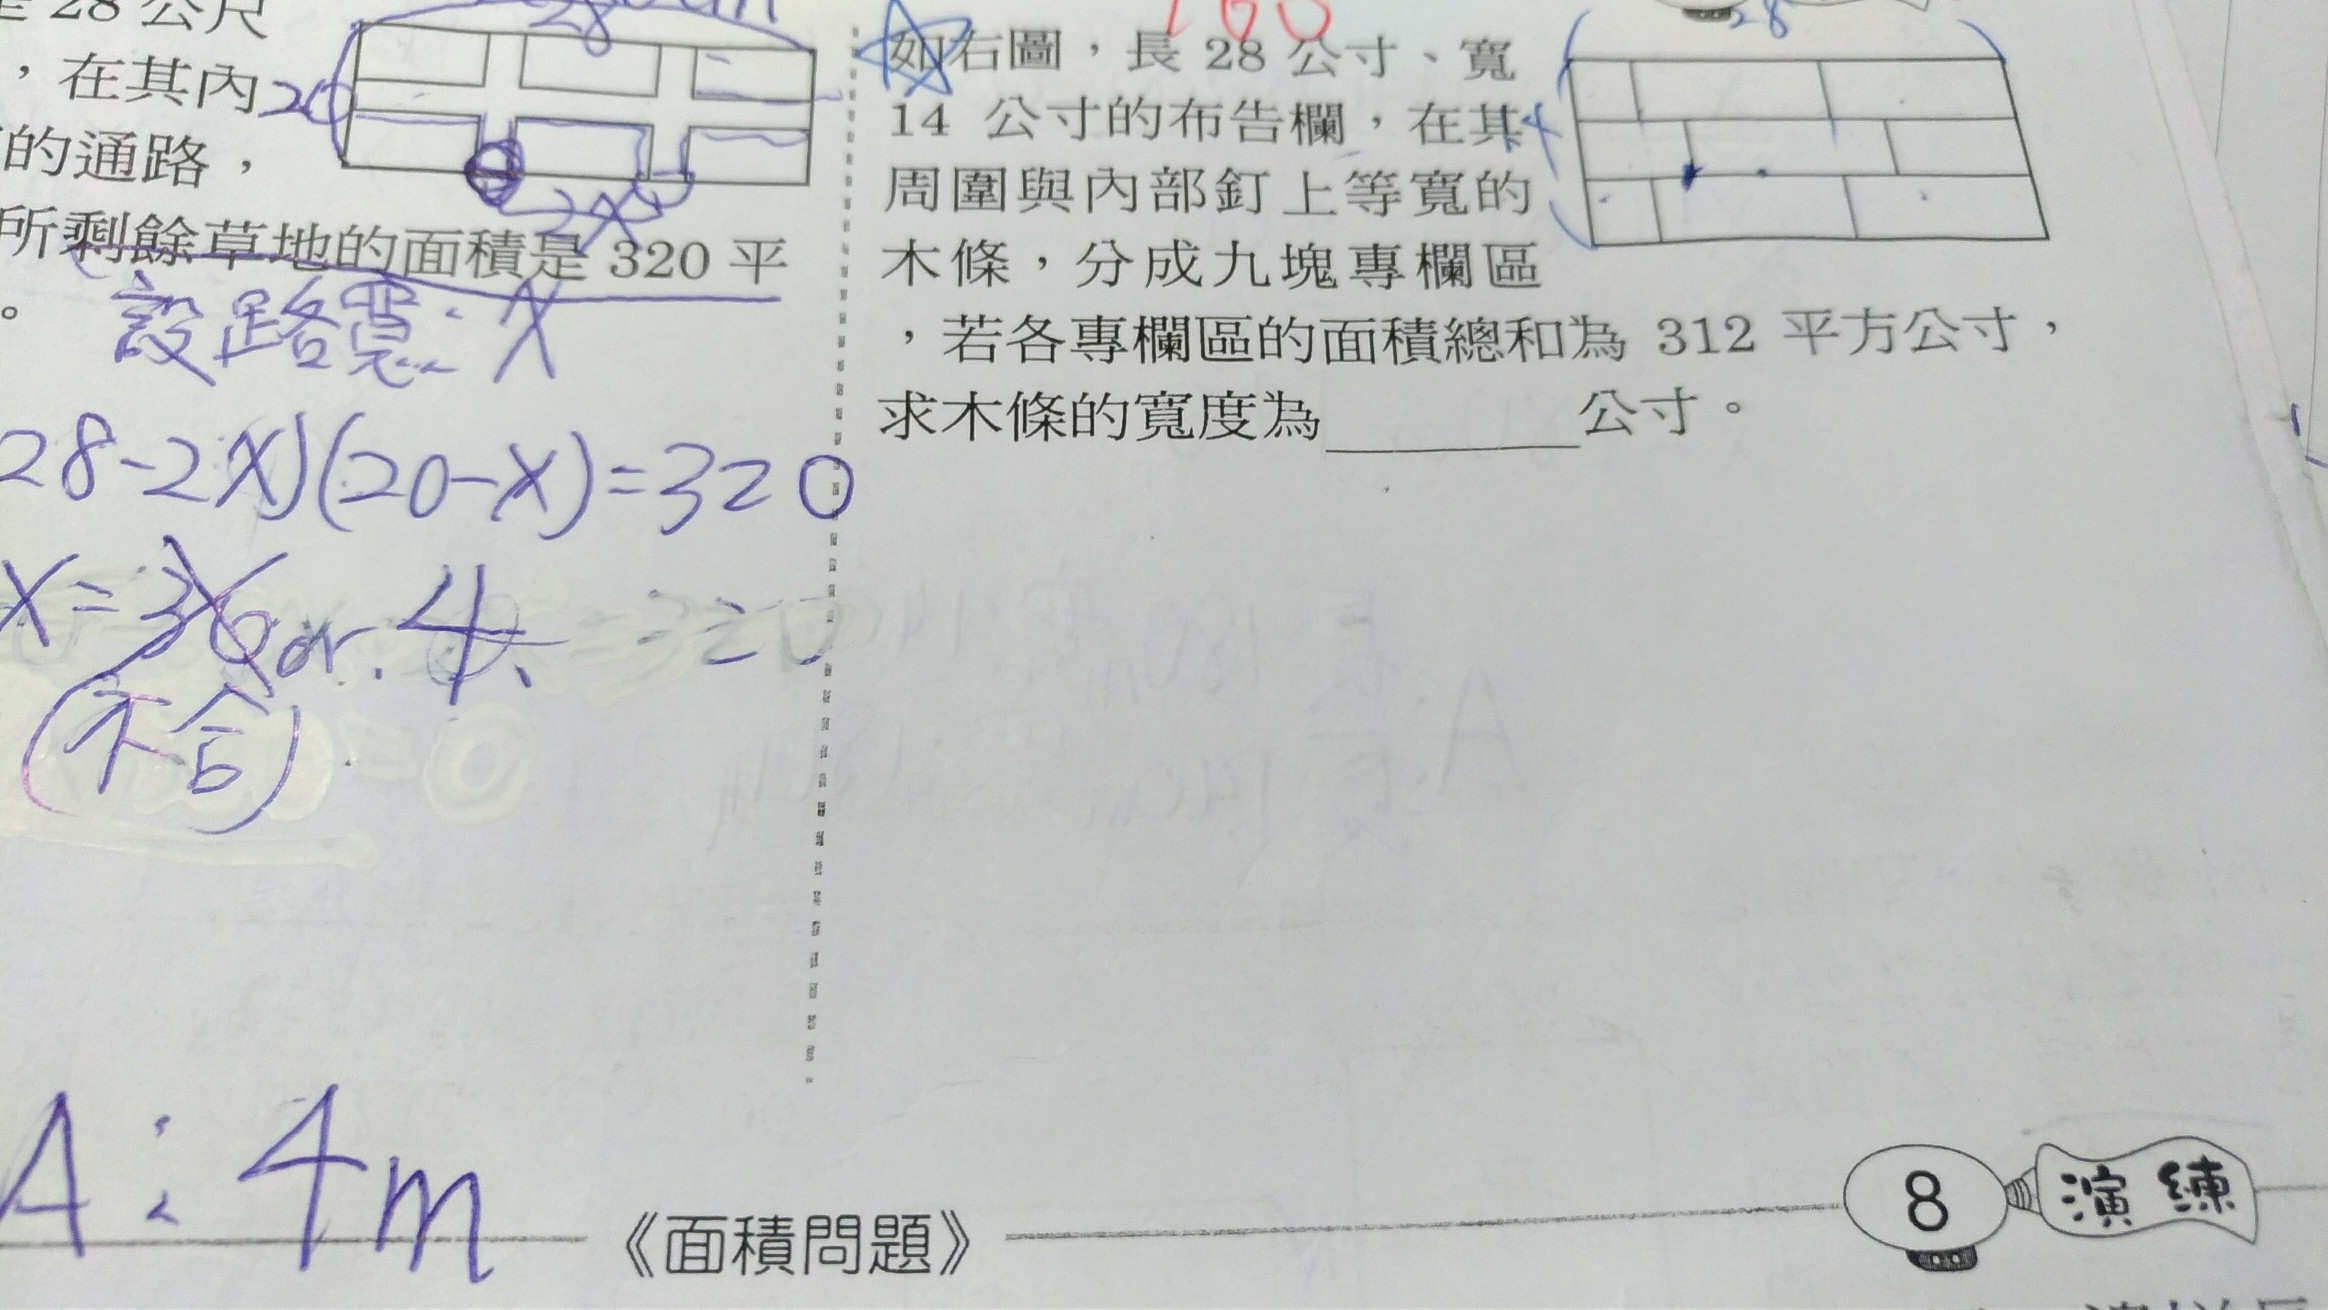 是 28 公尺
，在其內
的通路，
所剩餘草地的面積是 320 平
。
28
20
2x
設路寬：x
28-2x)(20-x)=320
x=36 or 4
(不合)
A：4m
如右圖，長 28 公寸、寬
14 公寸的布告欄，在其
周圍與內部釘上等寬的
木條，分成九塊專欄區
，若各專欄區的面積總和為 312 平方公寸，
求木條的寬度為公寸。
28
《面積問題》
8 演練